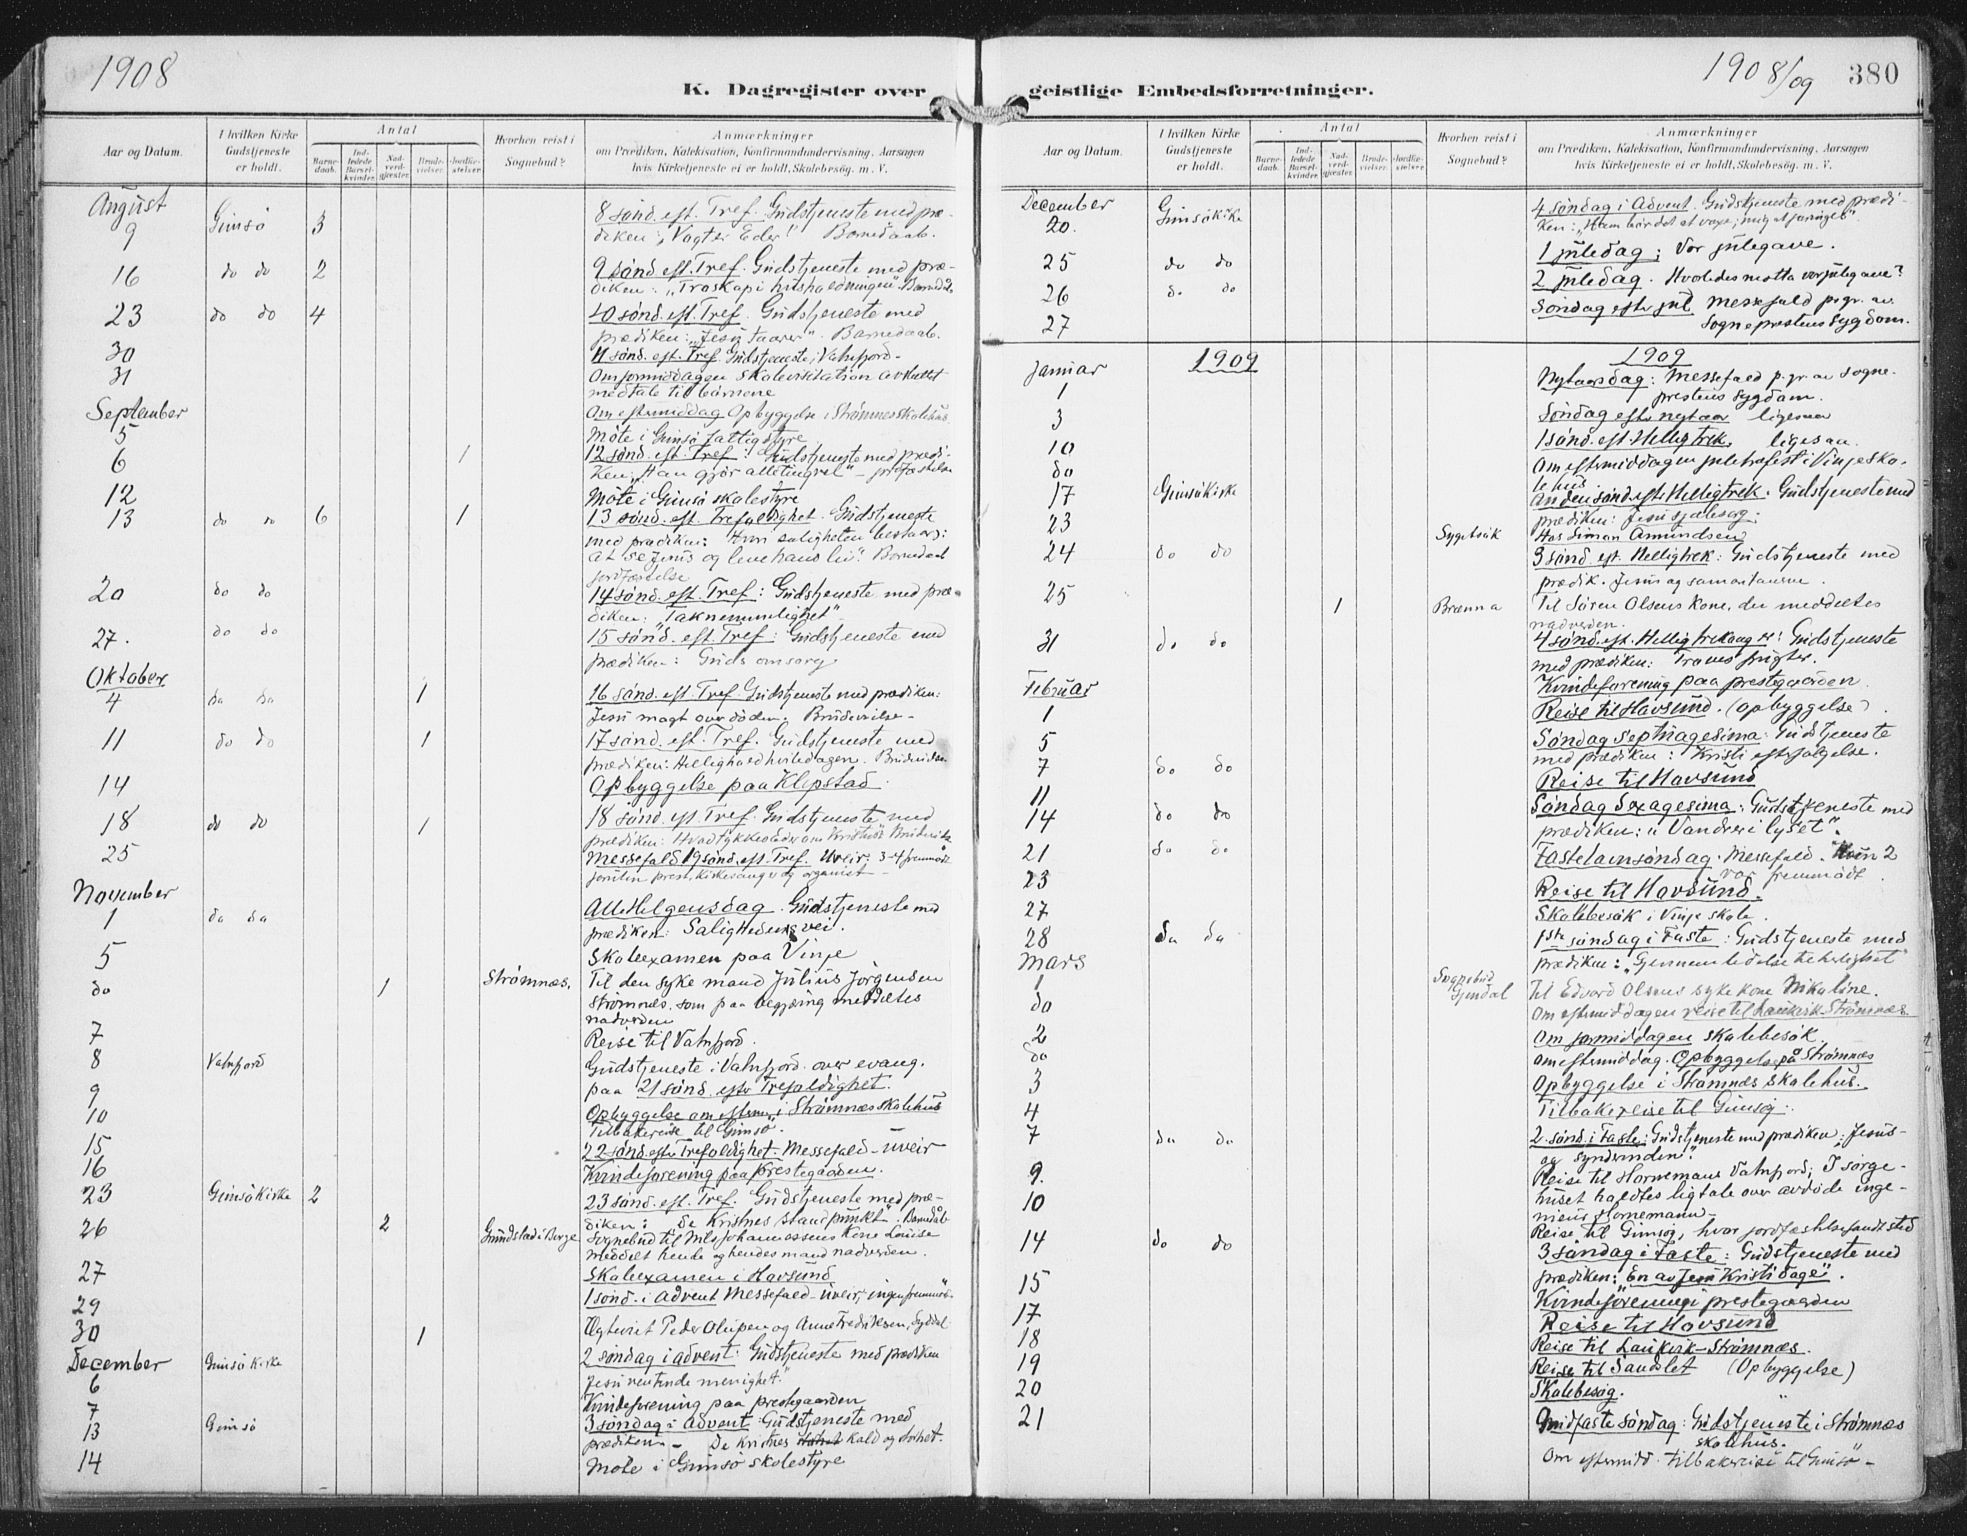 1908
K. Dagregister over
Aar og Datum.
I hvilken Kirke Gudstjeneste er holdt.
Antal
Barnedaab.
Indledede Barselkvinder.
Nadverdgjester.
Brudevielser.
Jordfæstelser.
Hvorhen reist i Sognebud?
Anmærkninger
om Prædiken, Katekisation, Konfirmandundervisning, Aarsagen
hvis Kirketjeneste ei er holdt, Skolebesøg. m. V.
August
9 Gimsö 3 8 sönd. eft. Tref. Gudstjeneste med præ-
diken: "Vogter Eder!" Barnedaab.
16 do do 2 9 sönd eft. Tref. Gudstjeneste med præ-
diken: "Troskap i husholdningen" Barnedåb
23 do do 4 10 sönd. eft. Tref. Gudstjeneste med
prædiken: "Jesu taarer". Barnedaab.
30 11 sönd. eft. Tref. Gudstjeneste i Vatnfjord-
31 Om formiddagen skolevisitation avsluttet
med tale til börnene
September Om eftermiddag Opbyggelse i Strömnes skolehus
5 Möte i Gimsö fattigstyre
6 1 12 sönd. eft. Tref: Gudstjeneste med prædi-
ken "Han gjör alle ting vel" - jordfæstelse
12 Möte i Gimsö skolestyre
13 do do 6 1 13 sönd. eft. Trefoldighet. Gudstjeneste
med prædiken: Hvori saligheten bestaar:
at se Jesus og leve hans liv". Barnedaab
jordfæstelse
20 do do 14 sönd. eft. Tref: Gudstjeneste med præ-
diken: "Taknemmelighet"
27. do do 15 sönd. eft. Tref: Gudstjeneste med
prædiken: Guds omsorg
Oktober
4 do do 1 16 sönd. eft. Tref. Gudstjeneste med prædiken:
Jesu magt over döden. Brudevielse-
11 do do 1 17 sönd. eft. Tref. Gudstjeneste med
prædiken: Hellighold hviledagen. Brudevielse
14 Opbyggelse paa Klepstad
18 do do 1 18 sönd. eft. Tref. Gudstjeneste med
prædiken: Hvad tykkes Eder om Kristus? Brudevielse
25 Messefald 19 sönd. eft. Tref. Uveir; 3-4 fremmöt
foruten prest, kirkesanger og organist -
November
1 do do Alle Helgensdag. Gudstjeneste med
prædiken: Salighedens vei.
5 Skoleexamen paa Vinje
do 1 Strømnæs, Til den syke mand Julius Jörgensen
Strömnes, som paa begjæring meddeltes
nadverden
7 Reise til Vatnfjord.
8 Vatnfjord Gudstjeneste i Vatnfjord over evang.
paa 21 sönd. efter Trefoldighet.
9 Opbyggelse om efterm. i Strömnæs skolehus
10 Tilbakereise til Gimsö.
15 22 sönd efter Trefoldighet - Messefald - uveir
16 Kvindeforening paa prestegaarden.
23 Gimsö Kirke 2 23 sönd. eft. Tref. Gudstjeneste med præ-
diken: De Kristnes standpunkt". Barnedåb
26 2 Grundstad i Borge Sognebud til Nils Johannessens kone Louise
meddelt hende og hendes mand nadverden.
27 Skoleexamen i Hovsund
29 1 sönd. i Advent Messefald - uveir, ingen fremmöt.
30 1 Egteviet Peder Olupsen og Anne Fredriksen, Syddal
December Gimsö Kirke 2 söndag i advent: Gudstjeneste med prædiken
6 Jesu ventende menighet."
7 Kvindeforening paa prestegaarden
13 Gimsö 3 söndag i Advent: Gudstjeneste med
prædiken - De kristnes kald og frihet.
14 Möte i Gimsö skolestyre
1908/09 380
geistlige Embedsforretninger.
Aar og Datum.
I hvilken Kirke Gudstjeneste er holdt.
Antal
Barnedaab.
Indledede Barselkvinder.
Nadverdgjester.
Brudevielser.
Jordfæstelser.
Hvorhen reist i Sognebud?
Anmærkninger
om Prædiken, Katekisation, Konfirmandundervisning, Aarsagen
hvis Kirketjeneste ei er holdt, Skolebesøg. m. V.
December
20. Gimsökirke 4 söndag i Advent. Gudstjeneste med prædi-
ken: "Ham bör det at voxe; mig at foringes"
25 do do 1 juledag; Vor julegave.
26 do do 2 juledag. Hvorledes motta vor julegave?
27 Söndag efter jul Messefald pgr. av
Sogneprestens sygdom.
1909 1909
Januar
1 Nytaarsdag: Messefald p. gr. av sogne-
prestens sygdom.
3 Söndag efter nytaar ligesaa
10 1 sönd. eft. Hellig trek. ligesaa.
do Om eftermiddagen juletrefest i Vinje sko-
lehus
17 Gimsö Kirke Anden sönd. eft. Helligtrek. Gudstjeneste med
prædiken: Jesu sjælesorg:
23 Sygebesök Hos Simon Amundsen
24 do do 3 sönd eft. Helligtrek: Gudstjeneste med
prædik. Jesus og samaritanerne.
25 1 Brenna Til Sören Olsens kone, der meddeltes
nadverden.
31 do do 4 sönd. eft. Hellig trekong er: Gudstjeneste
med prædiken: Troens frugter.
Februar Kvindeforening paa prestegaarden
1 Reise til Hovsund. (Opbyggelse)
5 Söndag Septuagesima: Gudstjeneste
7 do do med prædiken: Kristi efterfölgelse.
11 Reise til Hovsund
14 do do Söndag Sexagesima: Gudstjeneste med
prædiken: "Vandrer i lyset".
21 do do Fastelavnsöndag. Messefald. Kun 2
var fremmödt.
23 Reise til Hovsund.
27 Skolebesök i Vinje skole.
28 do do 1ste söndag i Faste: Gudstjeneste med
Mars prædiken: "Gjennem lidelse til herlighet"
1 Sognebud Gjendal Til Edvard Olsens syke kone Nikoline.
do Om eftermiddagen reise til Laukvik-Strömnæs
2 Om formiddagen skolebesök.
do om eftermiddag. Opbyggelse på Strömnæs
3 Opbyggelse i Strømnæs skolehus.
4 Tilbakereise til Gimsø.
7 do do 2. sönd. i Faste: Gudstjeneste med prædiken: Jesus
og synderinden".
9. Reise til Hornemans Vatnfjord; I sørge-
10 huset holdtes ligtale over avdöde inge-
niør Hornemann -
Reise til Gimsø, hvor jordfæstelse fandt sted
14 do do 3 söndag i Faste: Gudstjeneste med
prædiken: "En av Jesu Kristi dage".
15 Kvindeforening i prestegaarden
17 Reise til Hovsund
18 Reise til Laukvik-Strømnæs.
19 Reise til Sandslet (Opbyggelse)
20 Skolebesøg. "
21 Midfaste söndag: Gudstjeneste i Strømnæs
skolehus.
Om eftermidd. tilbakereise til Gimsö -